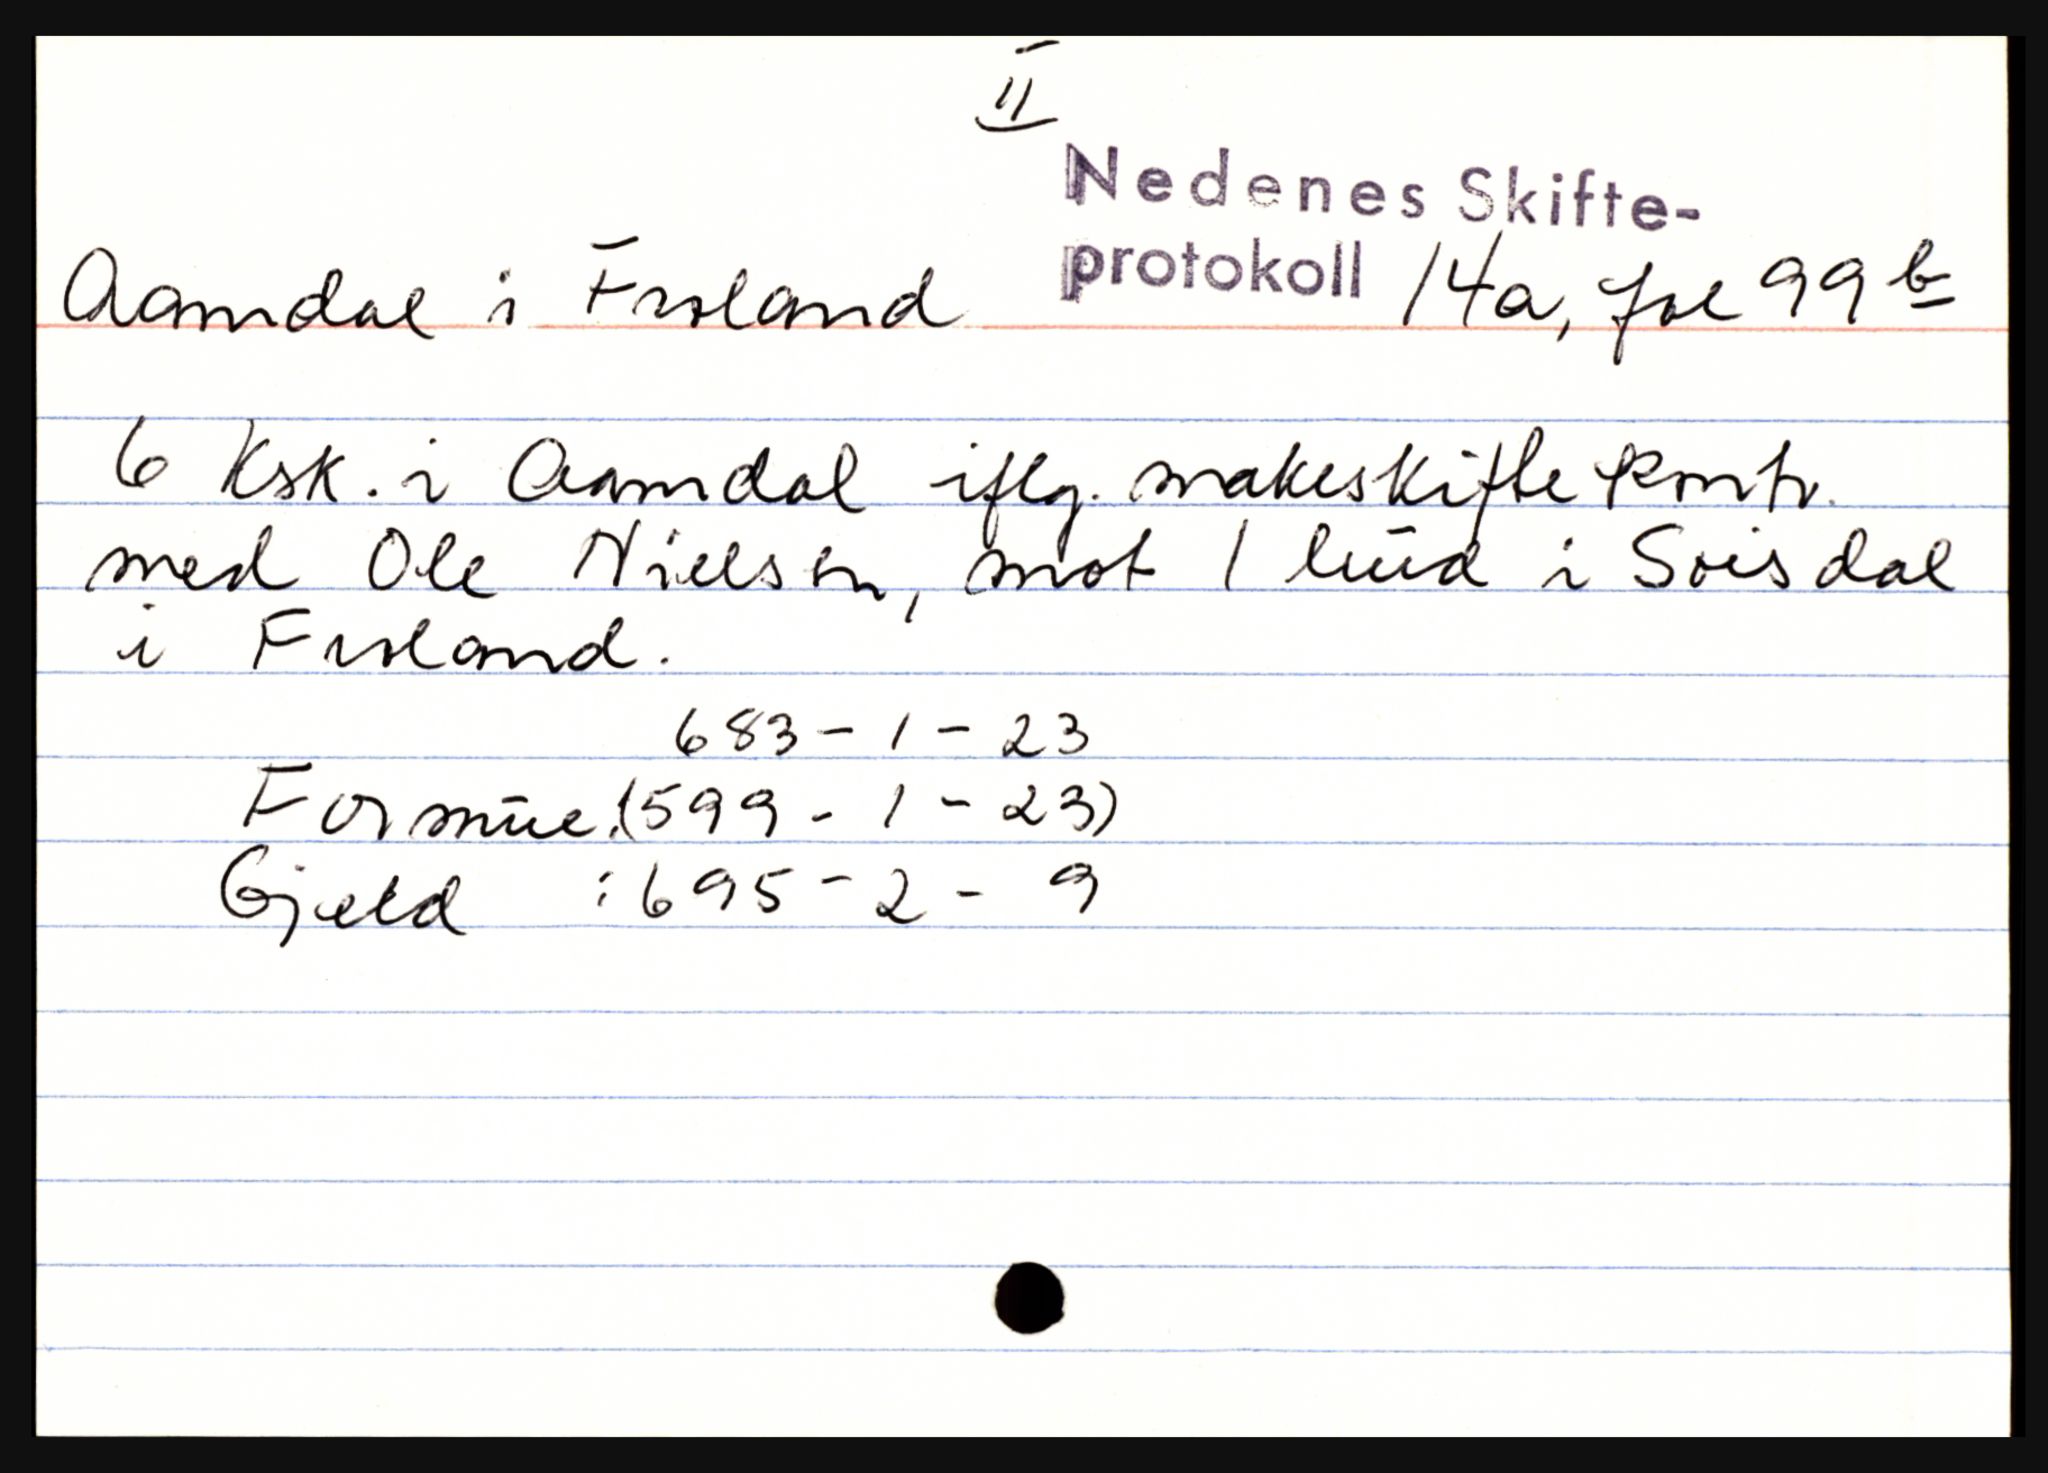 II
Nedenes Skifte-
Aamdal i Froland protokoll 14a, fol 99 b
6 Ksk. i Aamdal iflg. makeskifte kontr.
med Ole Nielsen, mot 1 hud i Soisdal
i Froland.
683 - 1 - 23
Formue: (599 - 1 - 23)
Gjeld : 695 - 2 - 9